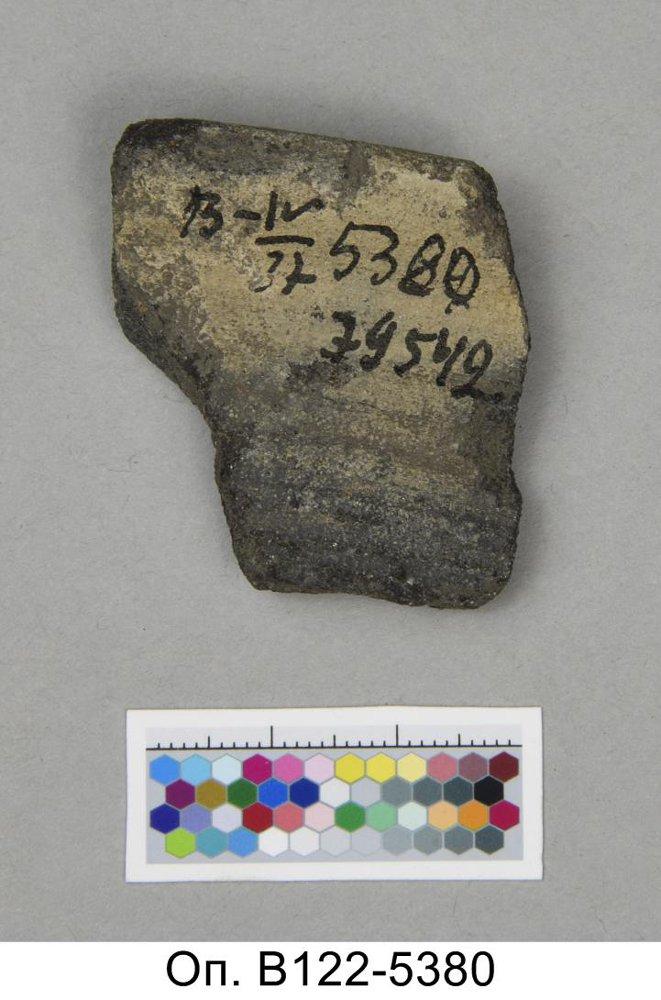 В-IV/37 5380
79542
Оп. В122-5380